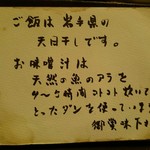 ご飯は岩手県の
天日干しです。
お味噌汁は
天然の魚のアラを
サ〜な時間コトコト炊いて
とったダシを使っていま
郷栗味下さ